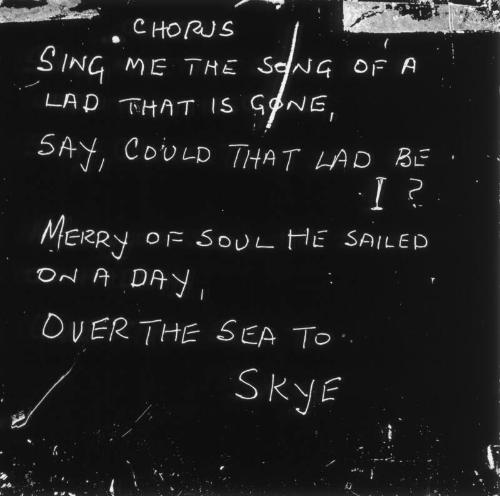 CHORUS
SING ME THE SONG OF A
LAD THAT IS GONE,
SAY, COULD THAT LAD BE
I?
MERRY OF SOUL HE SAILED
ON A DAY,
OVER THE SEA TO
SKYE